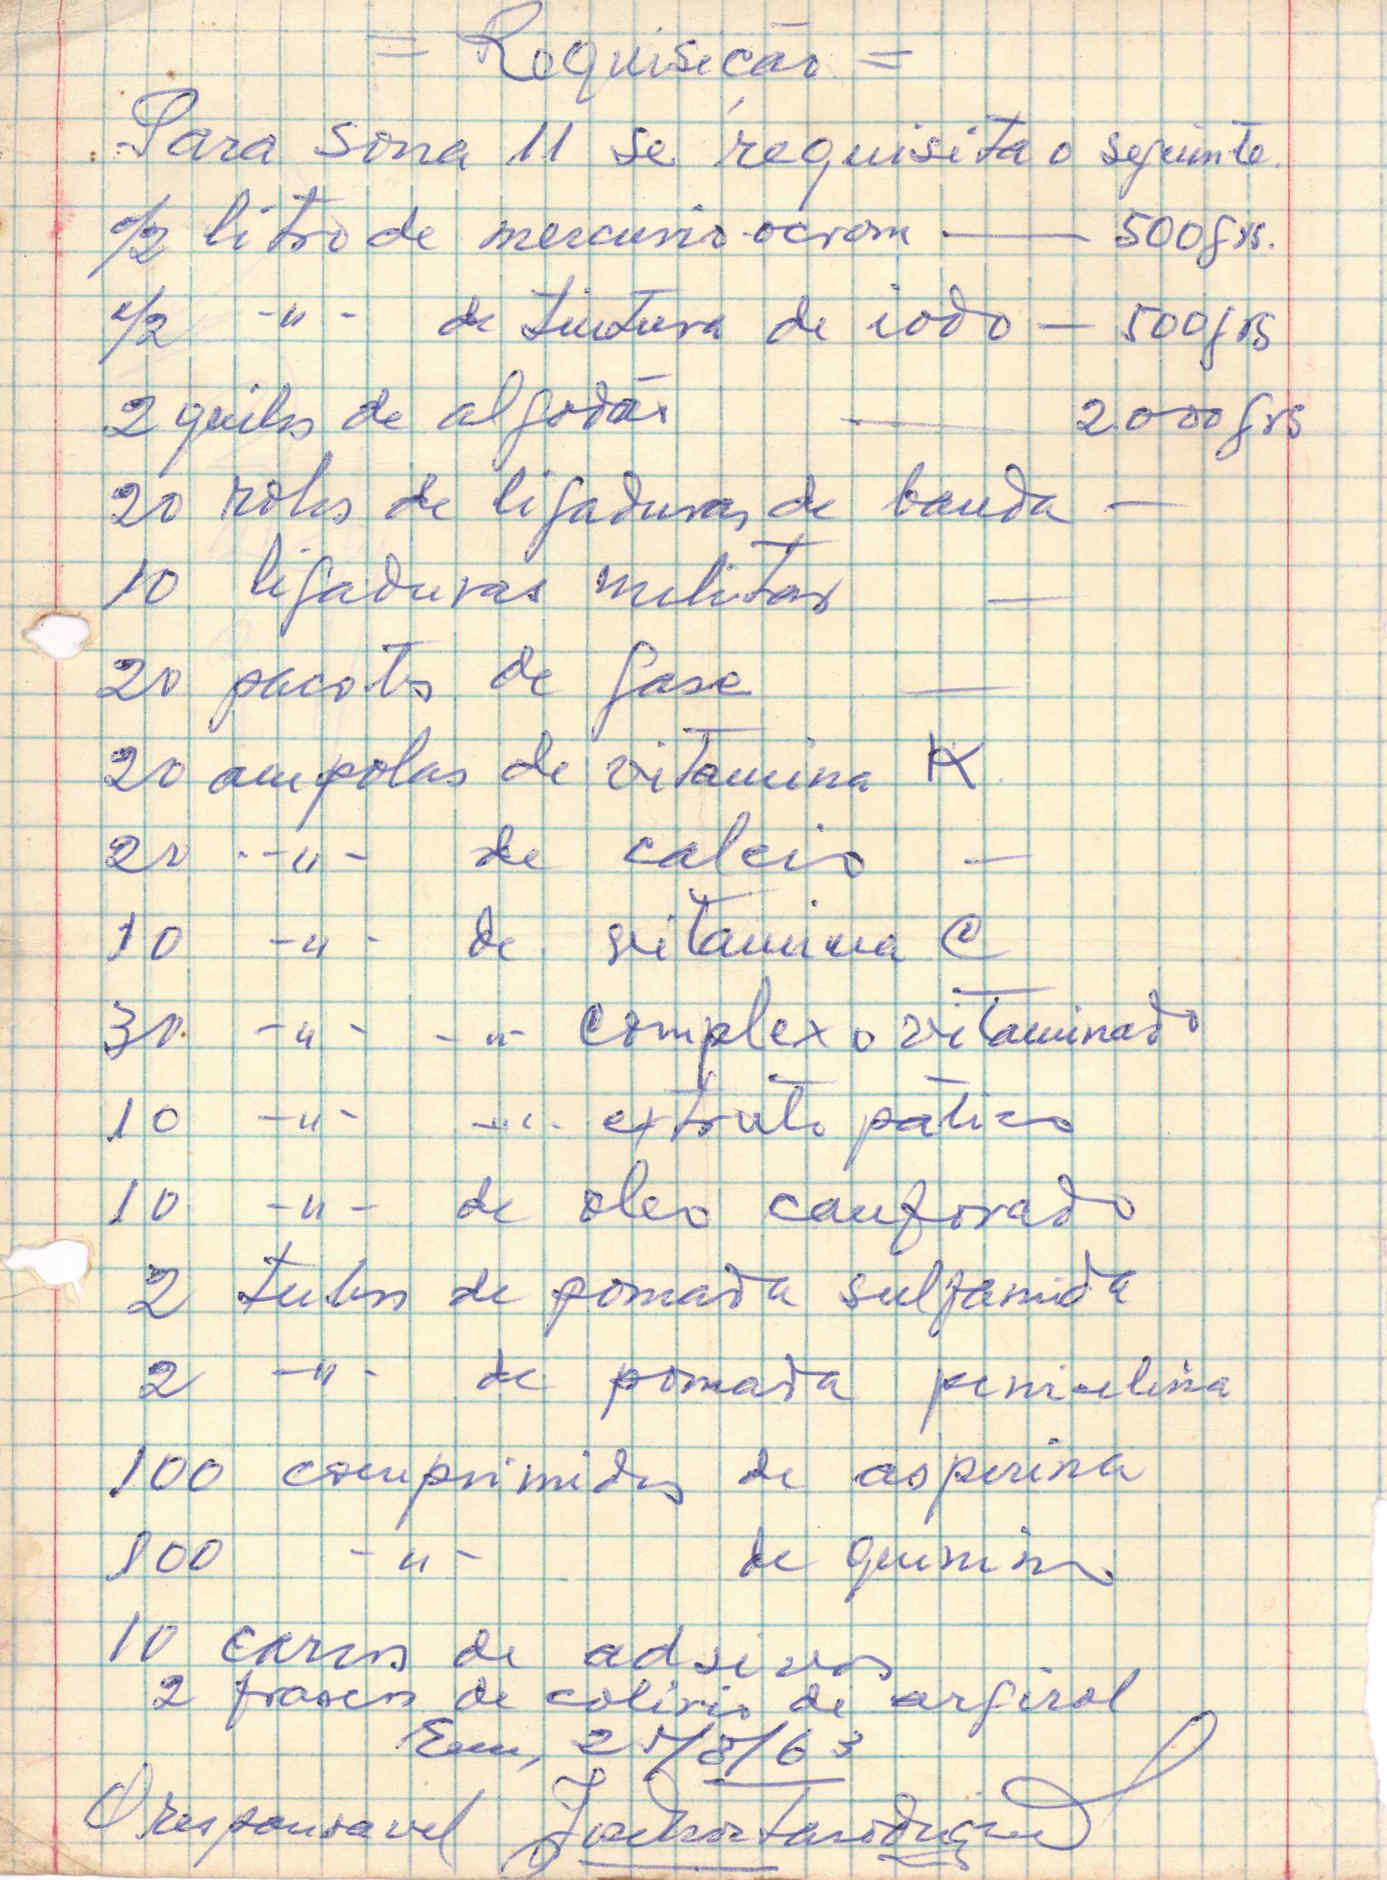 = Requisição =
Para sona 11 se requisita o seguinte.
1/2 litro de mercurio-ocrom — 500grs.
1/2 -"- de tintura de iodo — 500grs
2 quilos de algodão — 2000grs
20 rolos de ligaduras de banda —
10 ligaduras melitar —
20 pacotes de gase —
20 ampolas de vitamina K
20 -"- de calcio —
10 -"- de vitamina C
30 -"- -"- complexo vitaminado
10 -"- -"- extrato patico
10 -"- de oleo canforado
2 tubos de pomada sulfamida
2 -"- de pomada penicelina
100 comprimidos de asperina
100 -"- de quinino
10 carros de adsivos
2 frascos de colirio de argirol
Em, 25/8/63
O responsavel